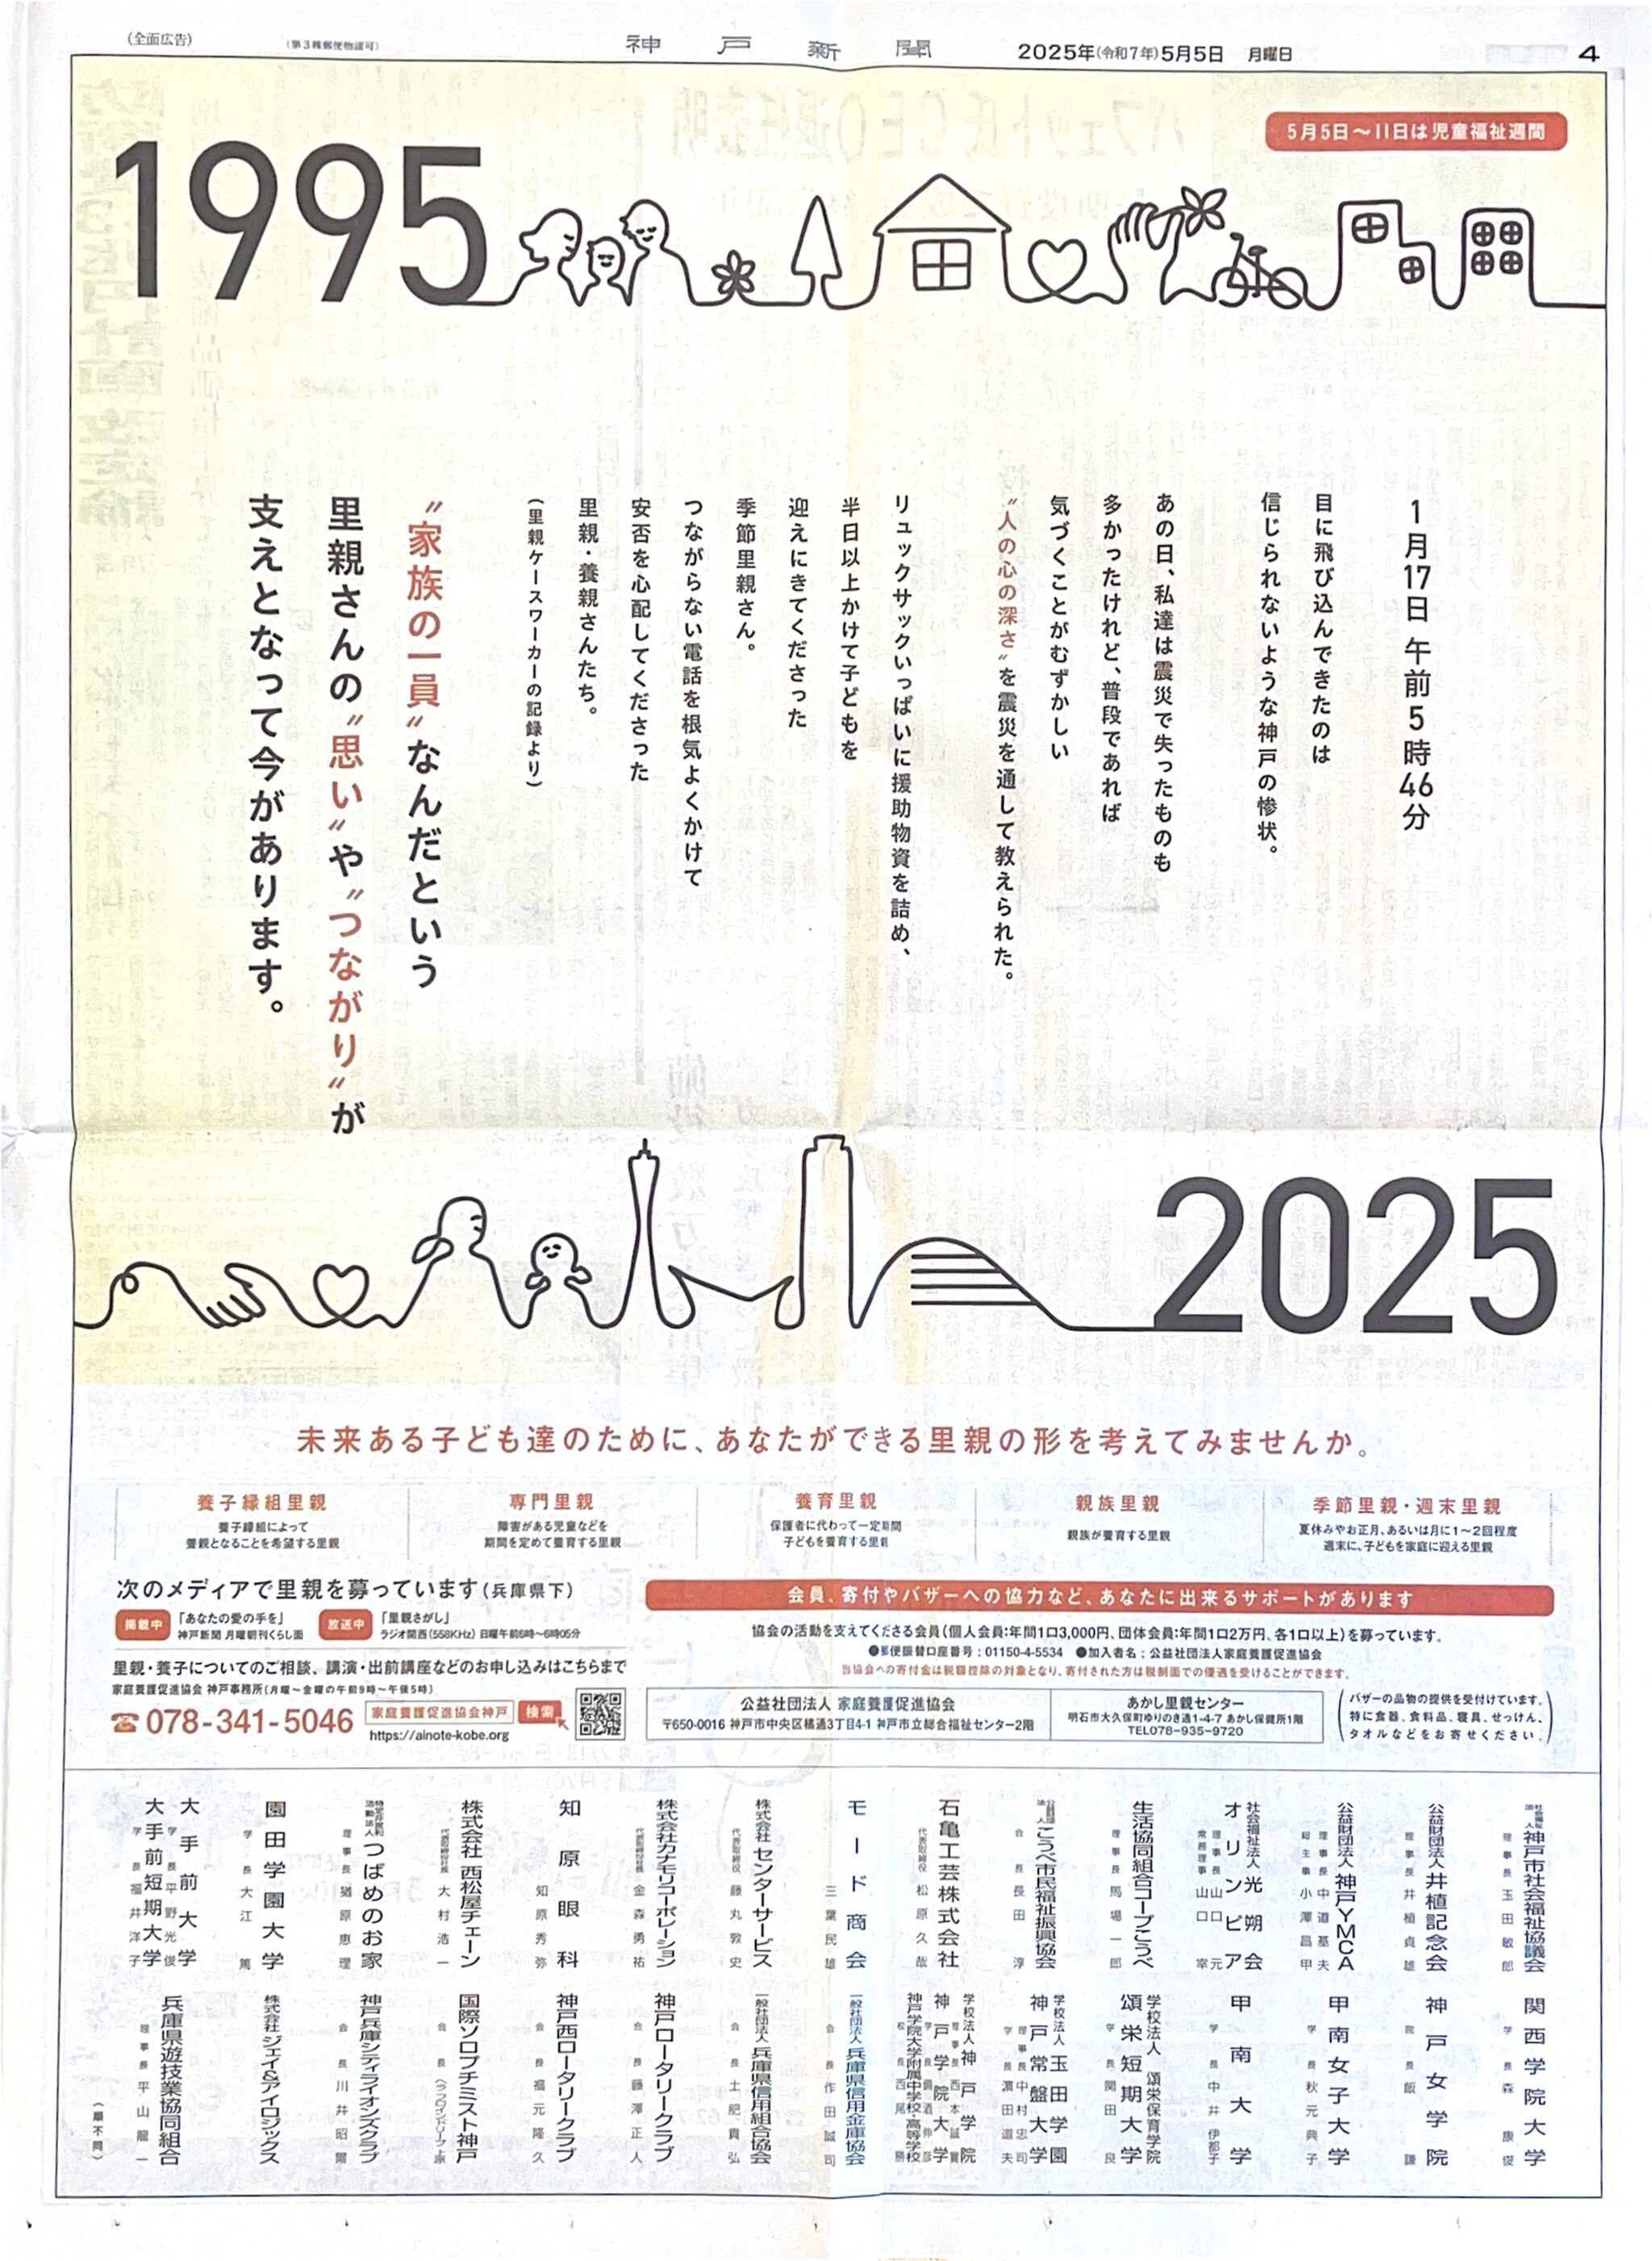 (全面広告)
(第3種郵便物認可)
神戸新聞
2025年(令和7年)5月5日 月曜日
4
5月5日〜11日は児童福祉週間
1995
1月17日 午前5時46分
目に飛び込んできたのは
信じられないような神戸の惨状。
あの日、私達は震災で失ったものも
多かったけれど、普段であれば
気づくことがむずかしい
〝人の心の深さ〟を震災を通して教えられた。
リュックサックいっぱいに援助物資を詰め、
半日以上かけて子どもを
迎えにきてくださった
季節里親さん。
つながらない電話を根気よくかけて
安否を心配してくださった
里親・養親さんたち。
(里親ケースワーカーの記録より)
〝家族の一員〟なんだという
里親さんの〝思い〟や〝つながり〟が
支えとなって今があります。
2025
未来ある子ども達のために、あなたができる里親の形を考えてみませんか。
養子縁組里親
養子縁組によって
養親となることを希望する里親
専門里親
障害がある児童などを
期間を定めて養育する里親
養育里親
保護者に代わって一定期間
子どもを養育する里親
親族里親
親族が養育する里親
季節里親・週末里親
夏休みやお正月、あるいは月に1〜2回程度
週末に、子どもを家庭に迎える里親
次のメディアで里親を募っています(兵庫県下)
掲載中
「あなたの愛の手を」
神戸新聞 月曜朝刊くらし面
放送中
「里親さがし」
ラジオ関西(558KHz) 日曜午前6時〜6時05分
里親・養子についてのご相談、講演・出前講座などのお申し込みはこちらまで
家庭養護促進協会 神戸事務所(月曜〜金曜の午前9時〜午後5時)
☎078-341-5046
家庭養護促進協会神戸 検索
https://ainote-kobe.org
会員、寄付やバザーへの協力など、あなたに出来るサポートがあります
協会の活動を支えてくださる会員(個人会員:年間1口3,000円、団体会員:年間1口2万円、各1口以上)を募っています。
●郵便振替口座番号:01150-4-5534 ●加入者名:公益社団法人家庭養護促進協会
当協会への寄付金は税額控除の対象となり、寄付された方は税制面での優遇を受けることができます。
公益社団法人 家庭養護促進協会
〒650-0016 神戸市中央区橘通3丁目4-1 神戸市立総合福祉センター2階
あかし里親センター
明石市大久保町ゆりのき通1-4-7 あかし保健所1階
TEL078-935-9720
バザーの品物の提供を受付けています。
特に食器、食料品、寝具、せっけん、
タオルなどをお寄せください。
社会福祉法人 神戸市社会福祉協議会
理事長 玉田敏郎
公益財団法人 井植記念会
理事長 井植貞雄
公益財団法人 神戸YMCA
理事長 中道基夫
総主事 小澤昌甲
社会福祉法人 光朔会
オリンピア
理事長 山口元
常務理事 山口宰
生活協同組合コープこうべ
理事長 馬場一郎
公益財団法人 こうべ市民福祉振興協会
会長 長田淳
石亀工芸株式会社
代表取締役 松原久哉
モード商会
三葉民雄
株式会社 センターサービス
代表取締役 藤丸敦史
株式会社カナモリコーポレーション
代表取締役社長 金森勇祐
知原眼科
知原秀弥
株式会社 西松屋チェーン
代表取締役社長 大村浩一
特定非営利活動法人 つばめのお家
理事長 猶原恵理
園田学園大学
学長 大江篤
大手前大学
学長 平野光俊
大手前短期大学
学長 福井洋子
関西学院大学
学長 森康俊
神戸女学院
院長 飯謙
甲南女子大学
学長 秋元典子
甲南大学
学長 中井伊都子
学校法人 頌栄保育学院
頌栄短期大学
学長 関田良
学校法人 玉田学園
神戸常盤大学
理事長 中村忠司
学長 濱田道夫
学校法人 神戸学院
理事長 西本誠實
神戸学院大学
学長 備酒伸彦
神戸学院大学附属中学校・高等学校
校長 西尾勝
一般社団法人 兵庫県信用金庫協会
会長 作田誠司
一般社団法人 兵庫県信用組合協会
会長 土肥貴弘
神戸ロータリークラブ
会長 藤澤正人
神戸西ロータリークラブ
会長 福元隆久
国際ソロプチミスト神戸
会長
神戸兵庫シティライオンズクラブ
会長 川井昭爾
株式会社 ジェイ&アイロジックス
兵庫県遊技業協同組合
理事長 平山龍一
(順不同)